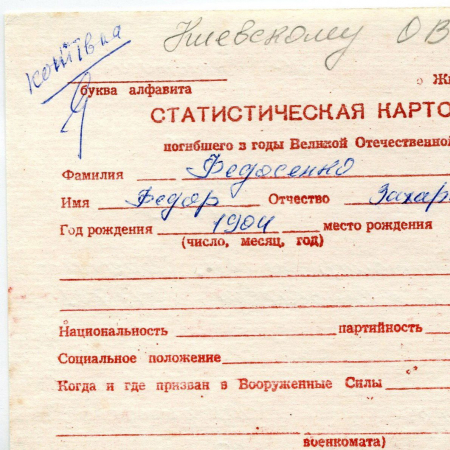 Киевскому ОВ
копівка
Ж
буква алфавита
СТАТИСТИЧЕСКАЯ КАРТО
погибшего в годы Великой Отечественной
Фамилия Федосенко
Имя Федор Отчество Захар
Год рождения 1904 место рождения
(число, месяц, год)
Национальность партийность
Социальное положение
Когда и где призван в Вооруженные Силы
военкомата)